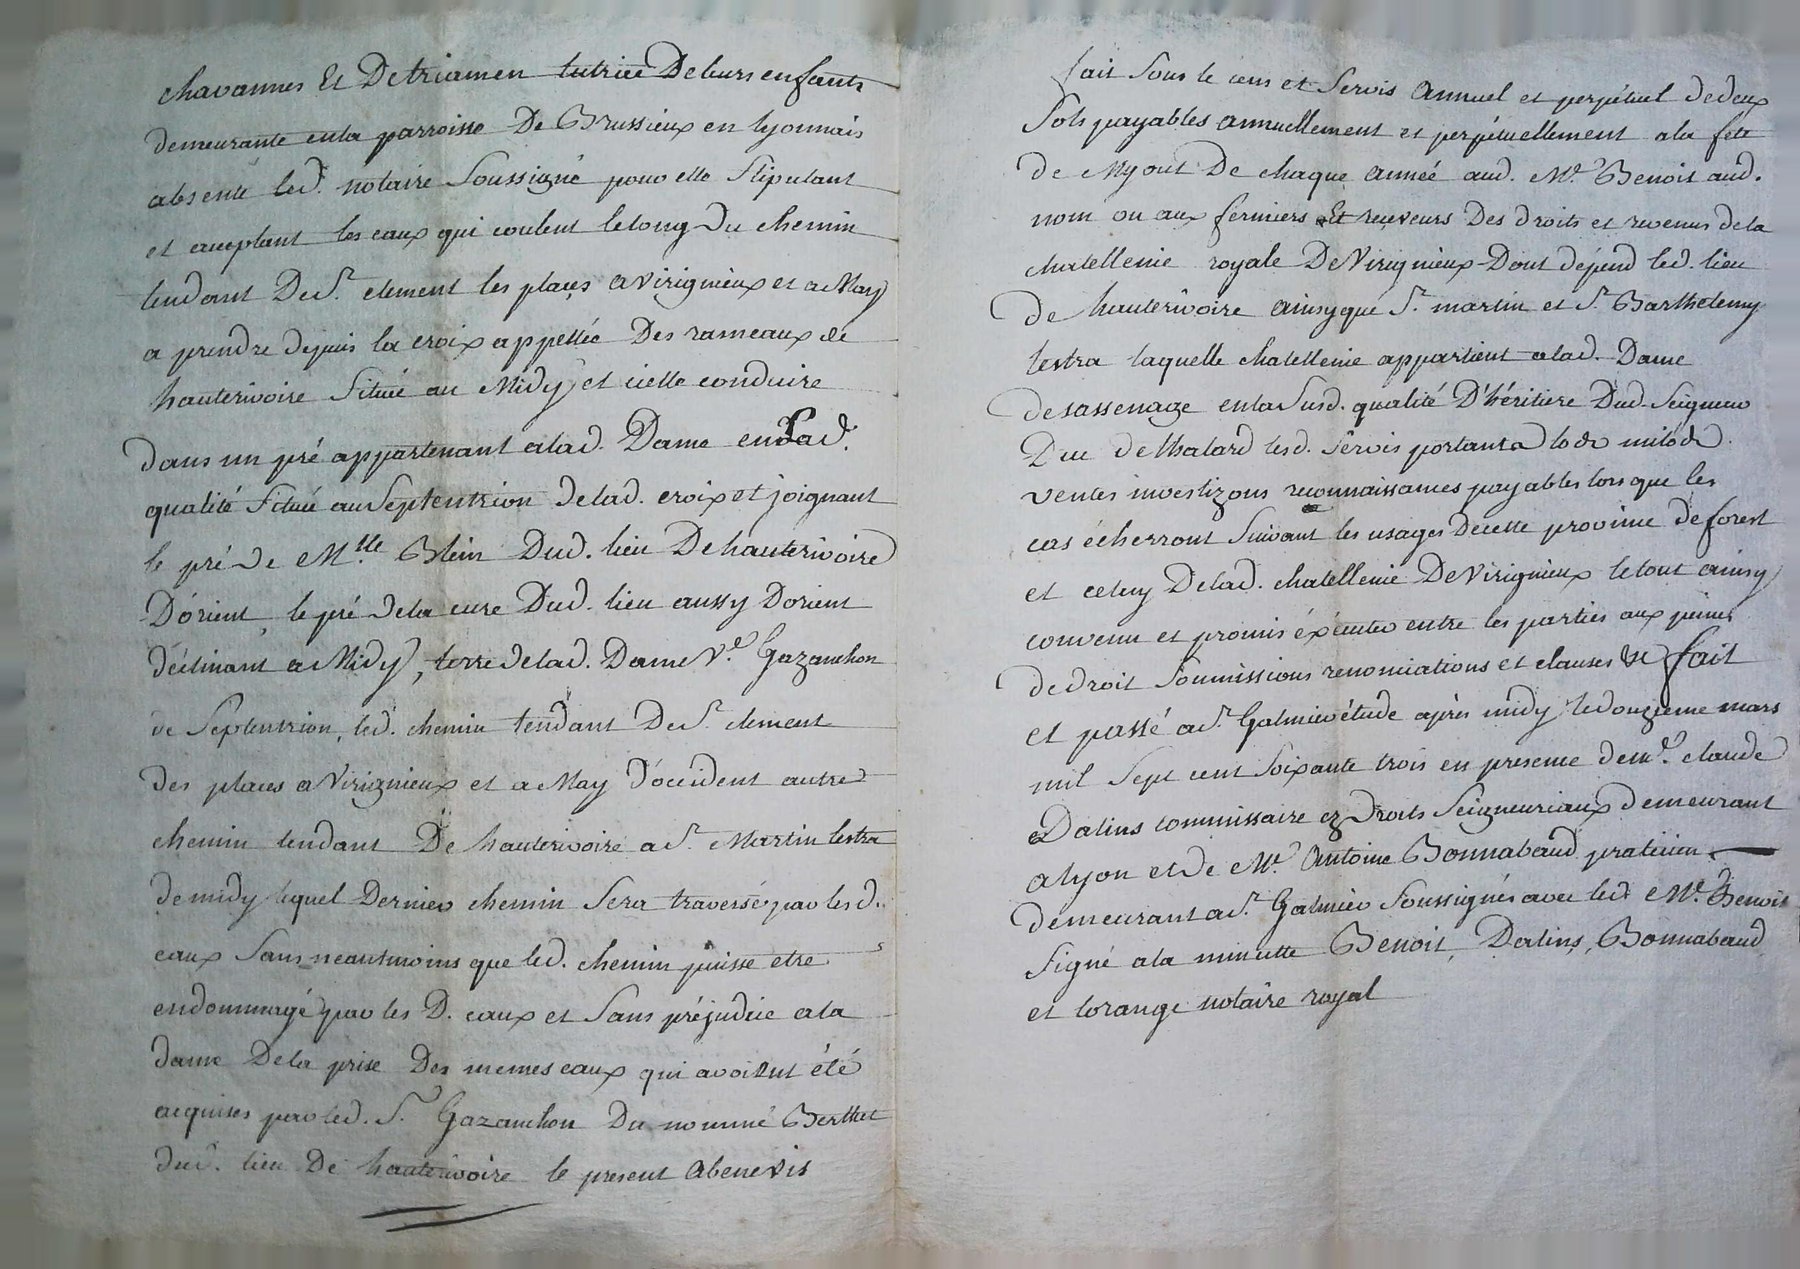 chavannes Et De triamen tutrice De leurs enfants
demeurante en la parroisse De Brussieux en lyonnais
absente led. notaire Soussigné pour elle Stipulant
et acceptant les eaux qui coulent le long Du chemin
tendant De St. clement les places a Virignieux et a May
a prendre depuis la croix appellée Des rameaux de
hauterivoire Située au Midy et icelle conduire
dans un pré appartenant a lad. Dame en Lad.
qualité Situé au Septentrion de lad. croix et joignant
le pré de Mlle Blein Dud. lieu De hauterivoire
D'orient, le pré de la cure Dud. lieu aussy D'orient
déclinant a Midy, terre de lad. Dame Ve. Gazanchon
de Septentrion, led. chemin tendant De St. clement
des places a Virignieux et a May d'occident autre
chemin tendant De hauterivoire a St. Martin lestra
de midy lequel Dernier chemin Sera traversé par lesd.
eaux Sans neantmoins que led. chemin puisse etre
endommagé par les D. eaux et Sans préjudice a la
dame De la prise Des memes eaux qui avoient été
acquises par led. Sr. Gazanchon Du nommé Berthet
dud. lieu De hauterivoire le present Abenevis
fait Sous le cens et Servis Annuel et perpétuel de deux
Sols payables annuellement et perpétuellement a la fete
de My out De chaque année aud. Me. Benoit aud.
nom ou aux fermiers Et receveurs Des droits et revenus de la
chatellenie royale De Virignieux Dont dépend led. lieu
de hauterivoire ainsy que St. martin et St. Barthelemy
lestra laquelle chatellenie appartient a lad. Dame
de sassenage en la Susd. qualité D'héritiere Dud. Seigneur
Duc de thalard lesd. Servis portants lods milods
ventes investizons reconnaissances payables lors que les
cas écherront Suivant les usages De cette province de forest
et celuy De lad. chatellenie De Virignieux le tout ainsy
convenu et promis éxécuter entre les parties aux peines
de droit Soumissions renonciations et clauses fait
et passé a St. Galmier étude après midy le douzieme mars
mil Sept cent Soixante trois en presence de me. claude
Dalins commissaire ez Droits Seigneuriaux demeurant
a lyon et de Me. Antoine Bonnabaud praticien
demeurant a St. Galmier Soussignés avec led. Me. Benoit
Signé a la minutte Benoit, Dalins, Bonnabaud
et lorange notaire royal